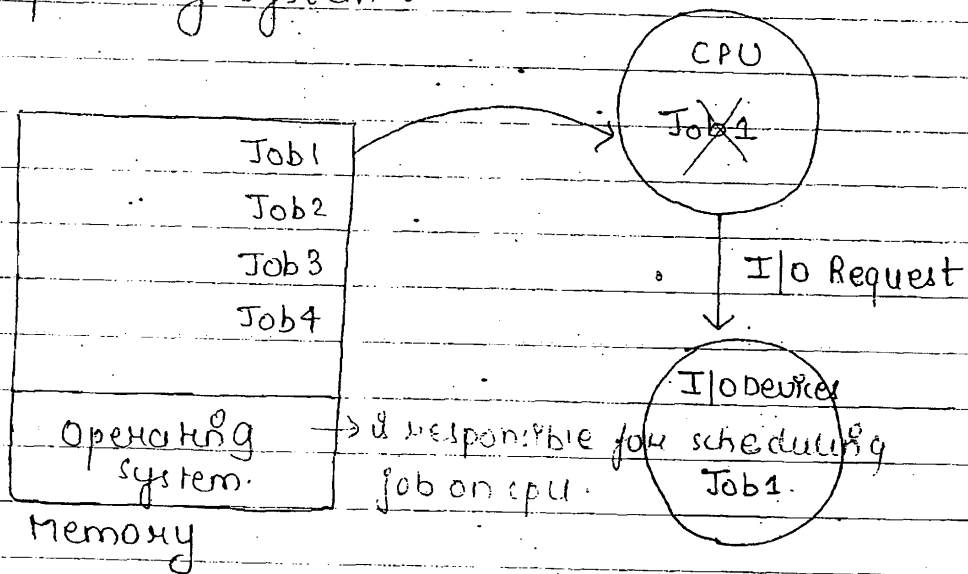 System.
CPU
Job 1
Job1
Job2
Job3
Job4
I/O Request
I/O Devices
Job1.
Operating system.
→ is responsible for scheduling
job on cpu.
Memory